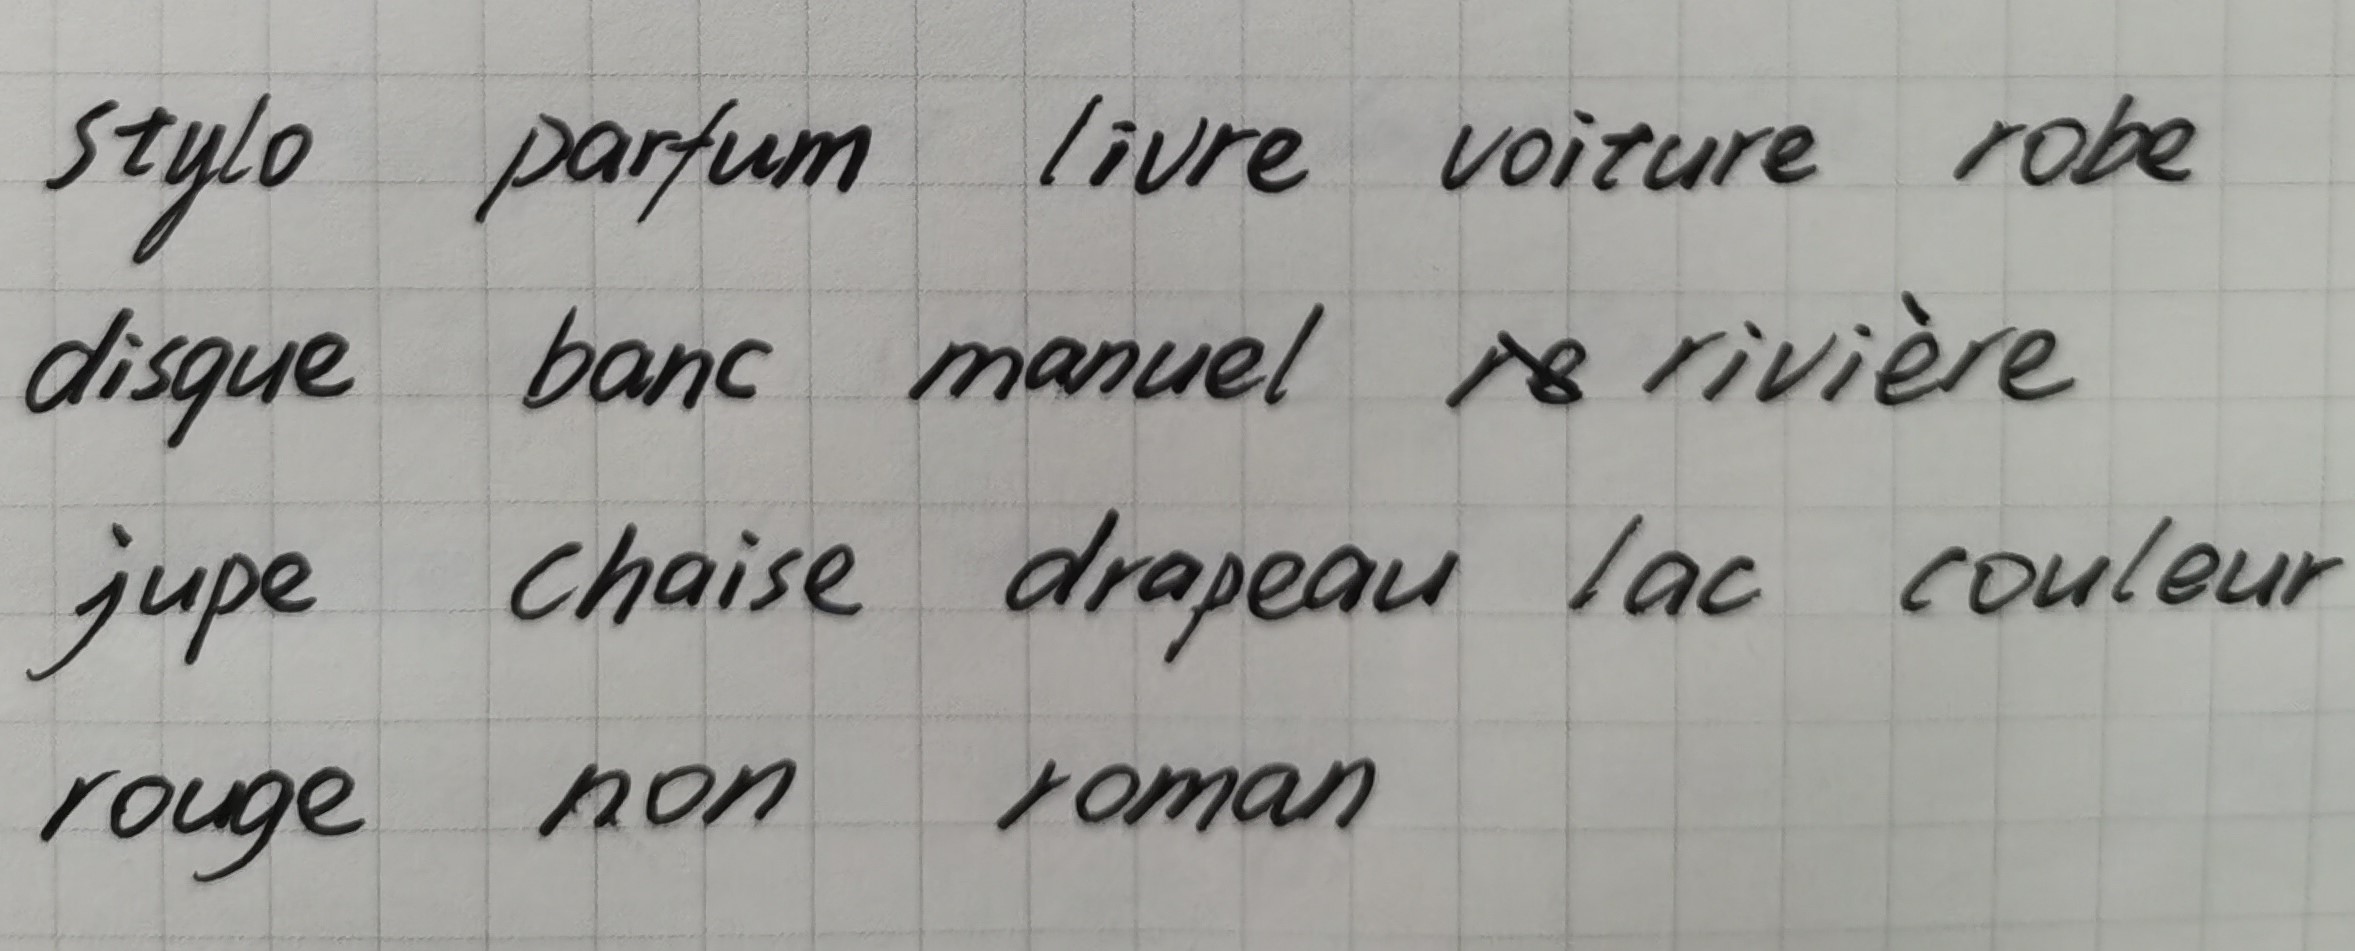 stylo parfum livre voiture robe
disque banc manuel rivière
jupe chaise drapeau lac couleur
rouge non roman